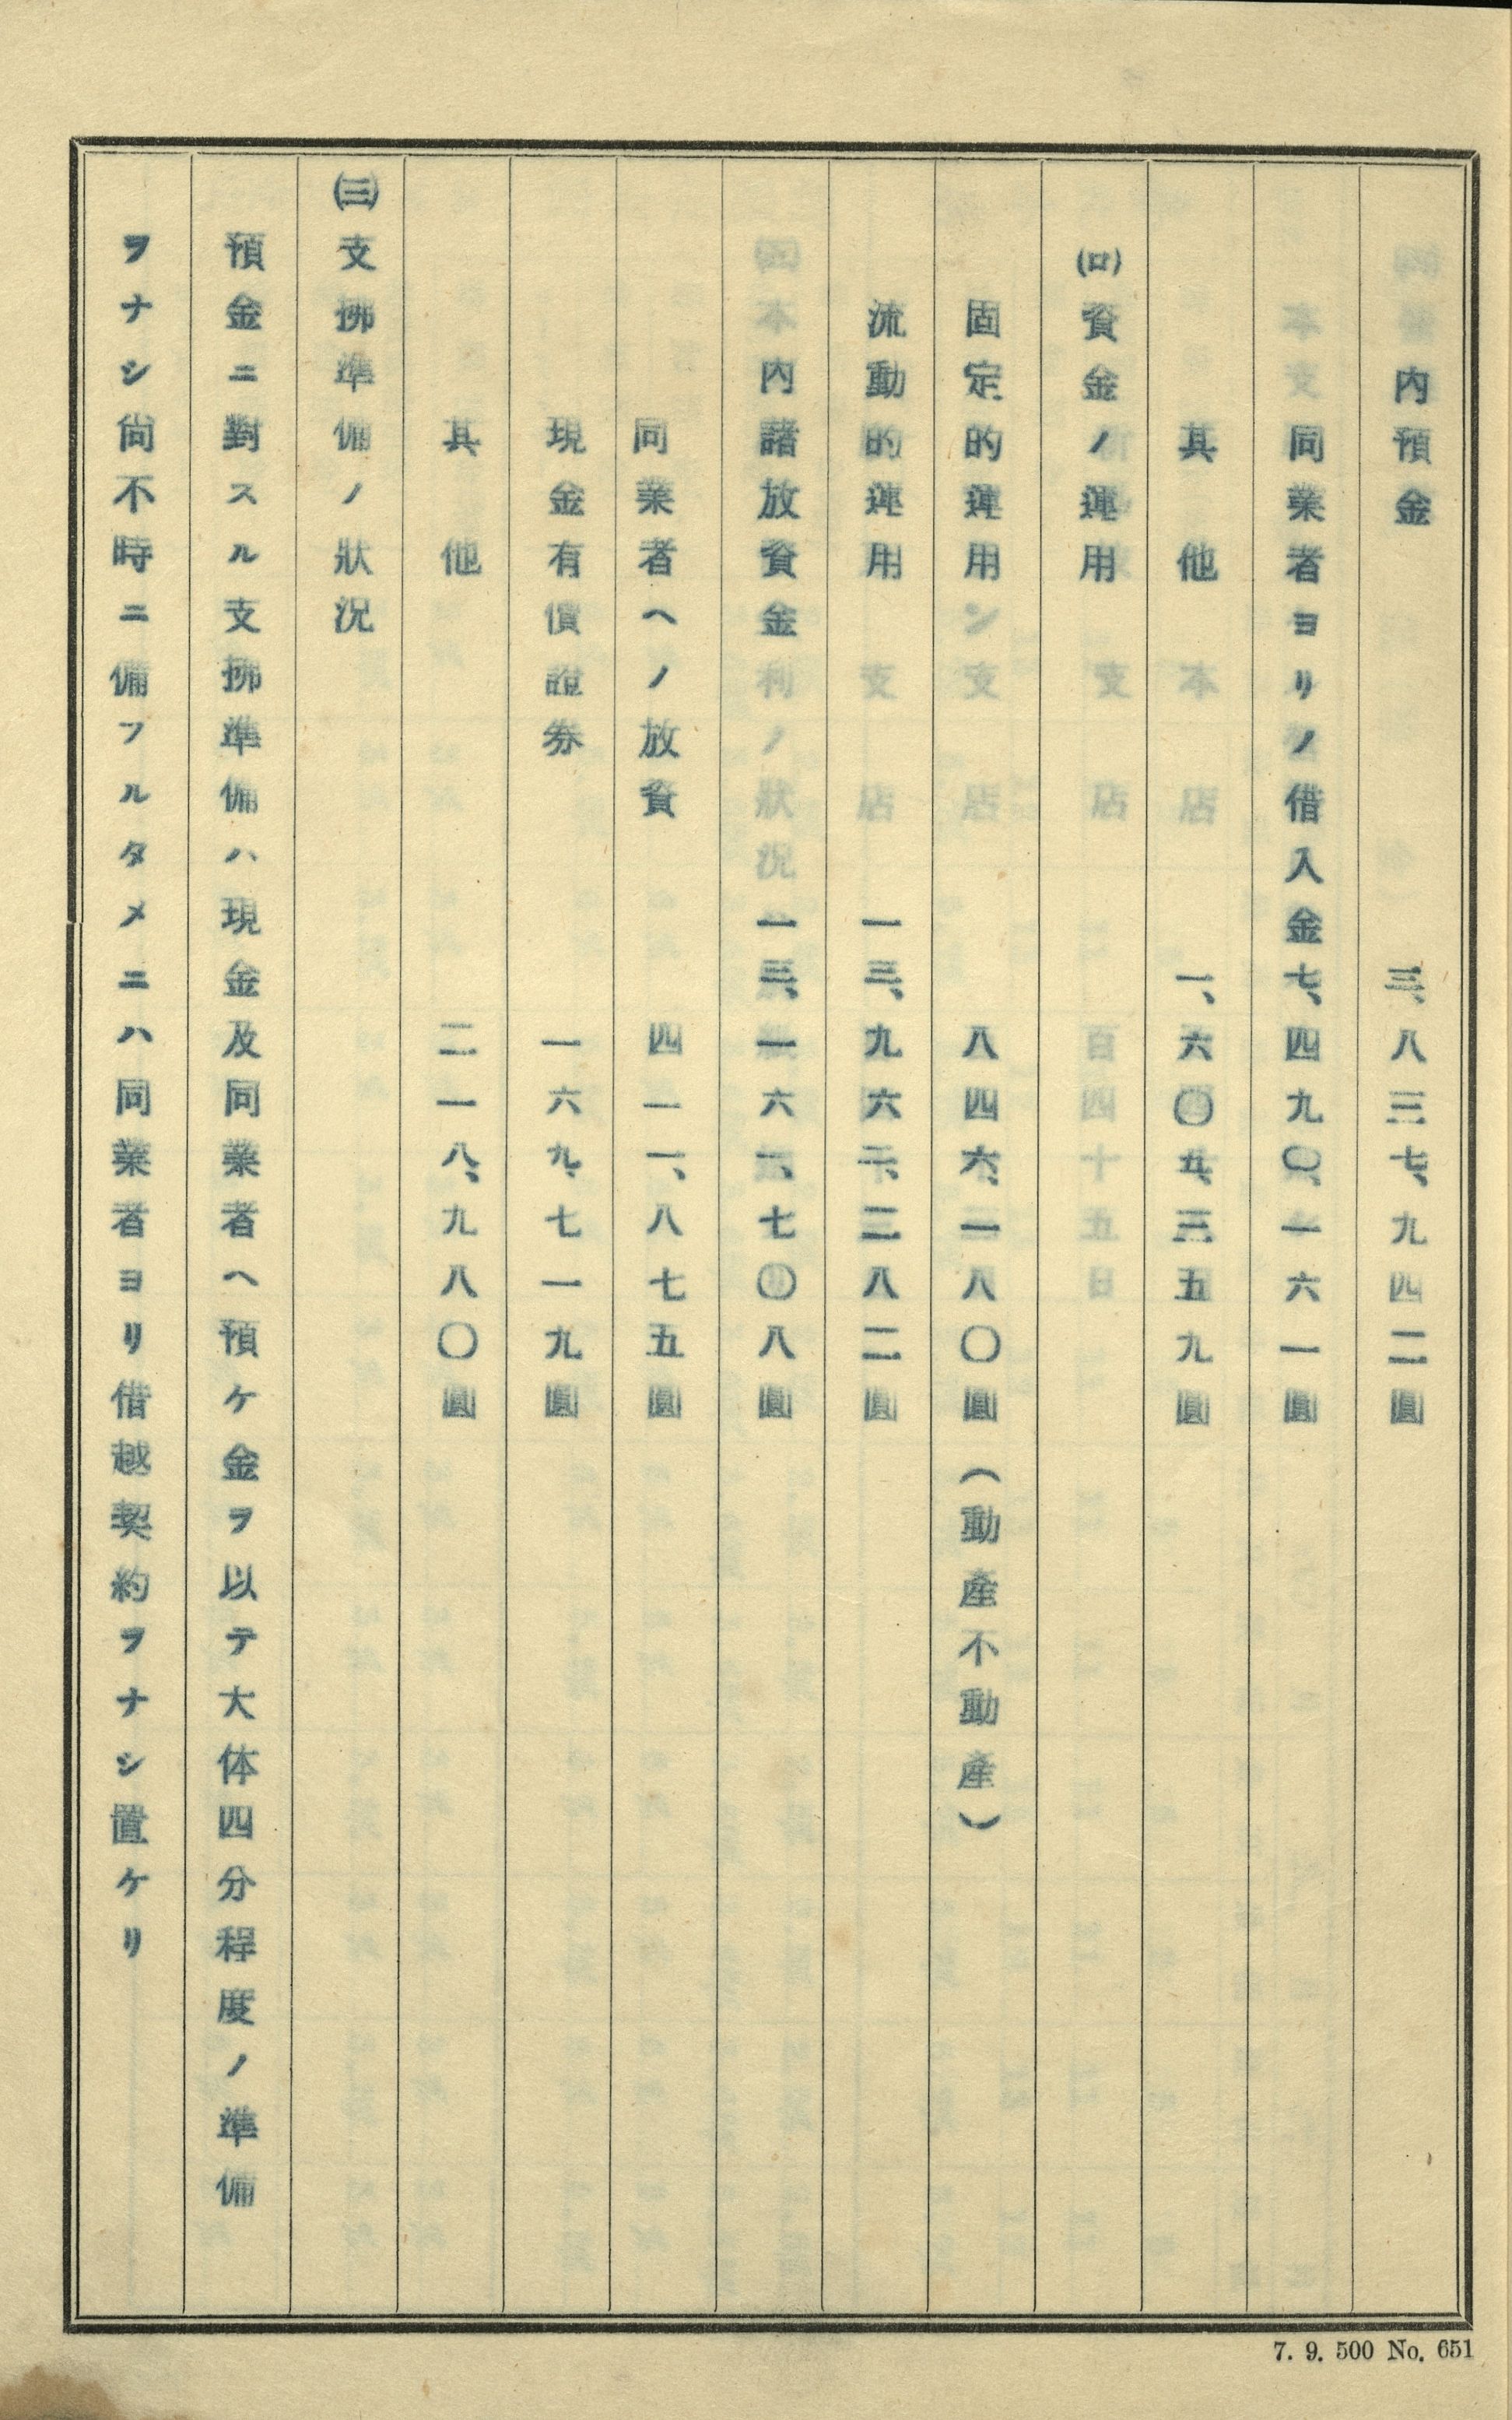 内預金 三、八三七、九四二圓
同業者ヨリノ借入金七、四九〇、一六一圓
其他 一、六〇五、三五九圓
(ロ)資金ノ運用
固定的運用 八四六、一八〇圓(動產不動產)
流動的運用 一三、九六二、二八二圓
内諸放資金 一三、一六一、七〇八圓
同業者ヘノ放資 四一一、八七五圓
現金有價證券 一六九、七一九圓
其他 二一八、九八〇圓
(三)支拂準備ノ狀況
預金ニ對スル支拂準備ハ現金及同業者ヘ預ケ金ヲ以テ大体四分程度ノ準備
ヲナシ尙不時ニ備フルタメニハ同業者ヨリ借越契約ヲナシ置ケリ
7. 9. 500 No. 651